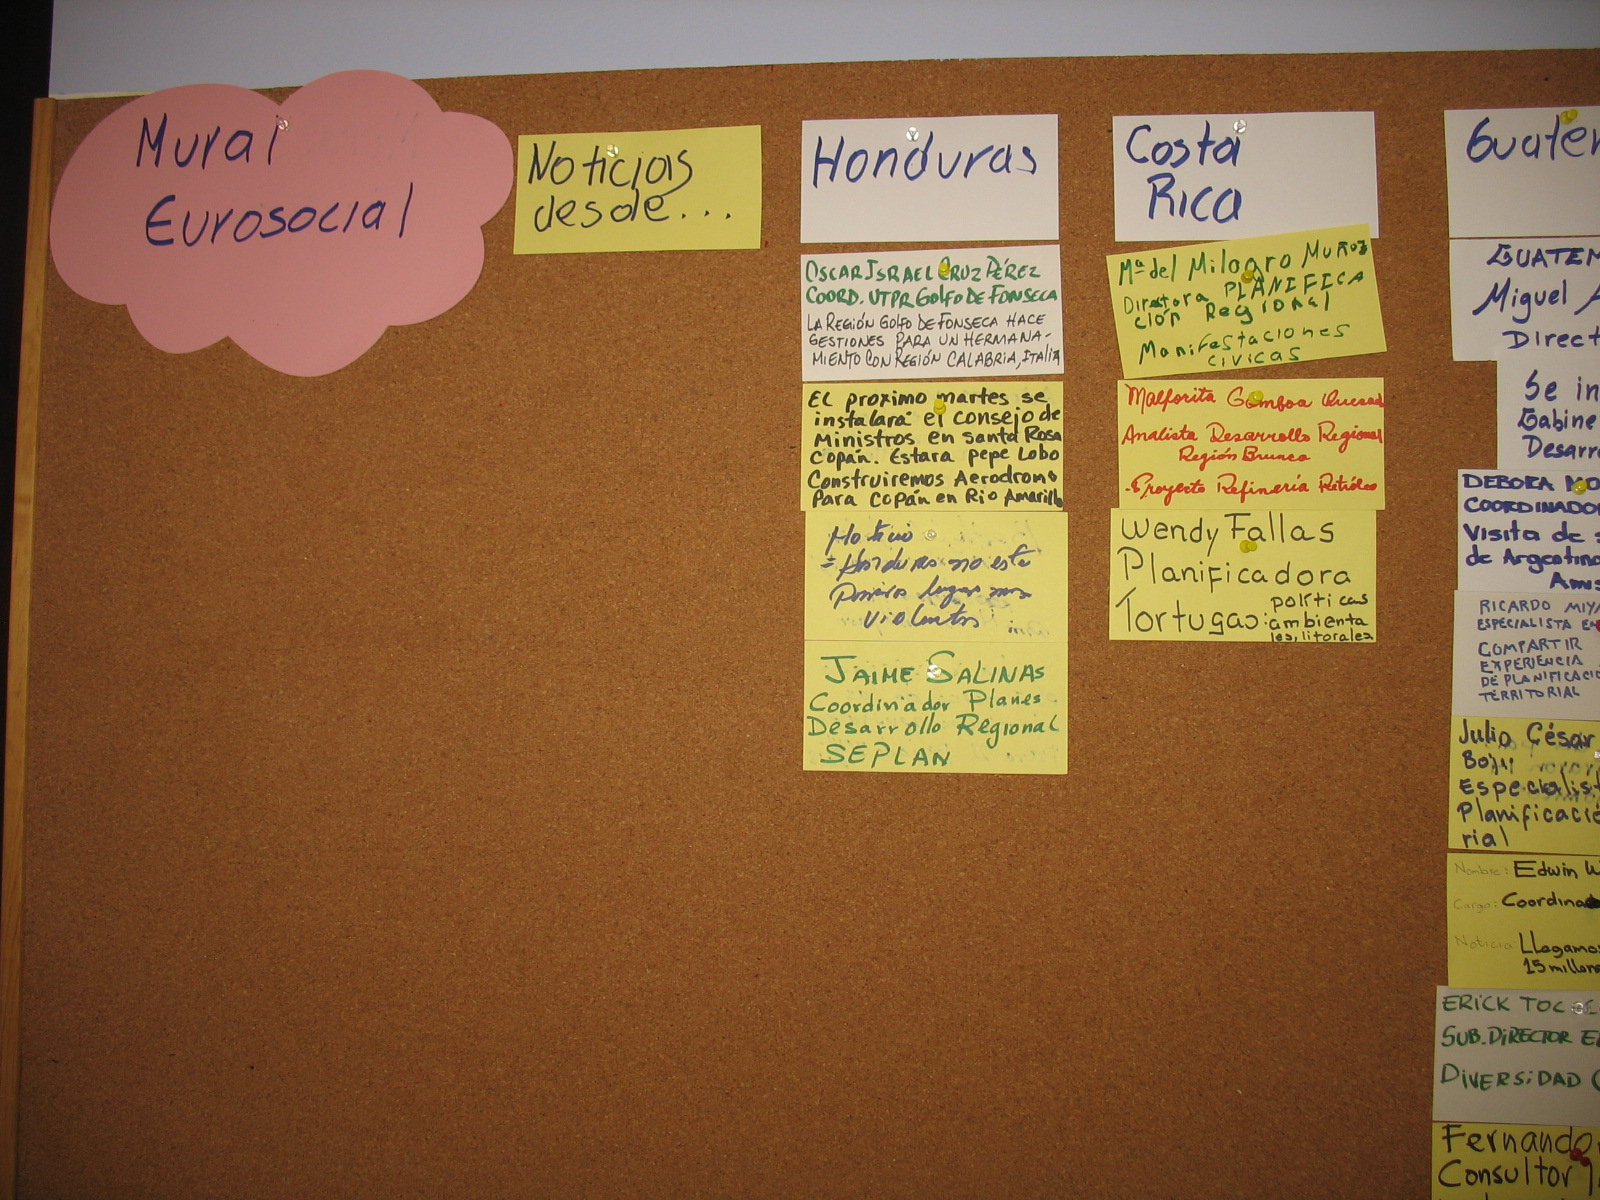 Mural
Eurosocial
Noticias
desde...
Honduras
OSCAR ISRAEL CRUZ PÉREZ
COORD. UTPR GOLFO DE FONSECA
LA REGIÓN GOLFO DE FONSECA HACE
GESTIONES PARA UN HERMANA-
MIENTO CON REGIÓN CALABRIA, ITALIA
El proximo martes se
instalará el consejo de
Ministros en Santa Rosa
Copán. Estara pepe Lobo
Construiremos Aerodromo
Para copán en Rio Amarillo
Noticia
Honduras no esta
lugar mas
violentos
JAIME SALINAS
Coordinador Planes
Desarrollo Regional
SEPLAN
Costa
Rica
Mª del Milagro Muñoz
Directora PLANIFICA
ción Regional
Manifestaciones
civicas
Gamboa
Analista Desarrollo Regional
Región Brunca
-Proyecto Refinería
Wendy Fallas
Planificadora
Tortugas: políticas
ambienta
les, litorales
Guatem
GUATEM
Miguel A
Direct
Se in
Gabine
Desarr
DEBORA MO
COORDINADO
Visita de
de Argentina
RICARDO MIYA
ESPECIALISTA EN
COMPARTIR
EXPERIENCIA
DE PLANIFICACIÓ
TERRITORIAL
Julio César
Especialist
Planificació
rial
Nombre: Edwin W
Cargo: Coordina
Noticia: Llegamos
15 millon
ERICK TOC
SUB.DIRECTOR E
DIVERSIDAD (
Fernando
Consultor